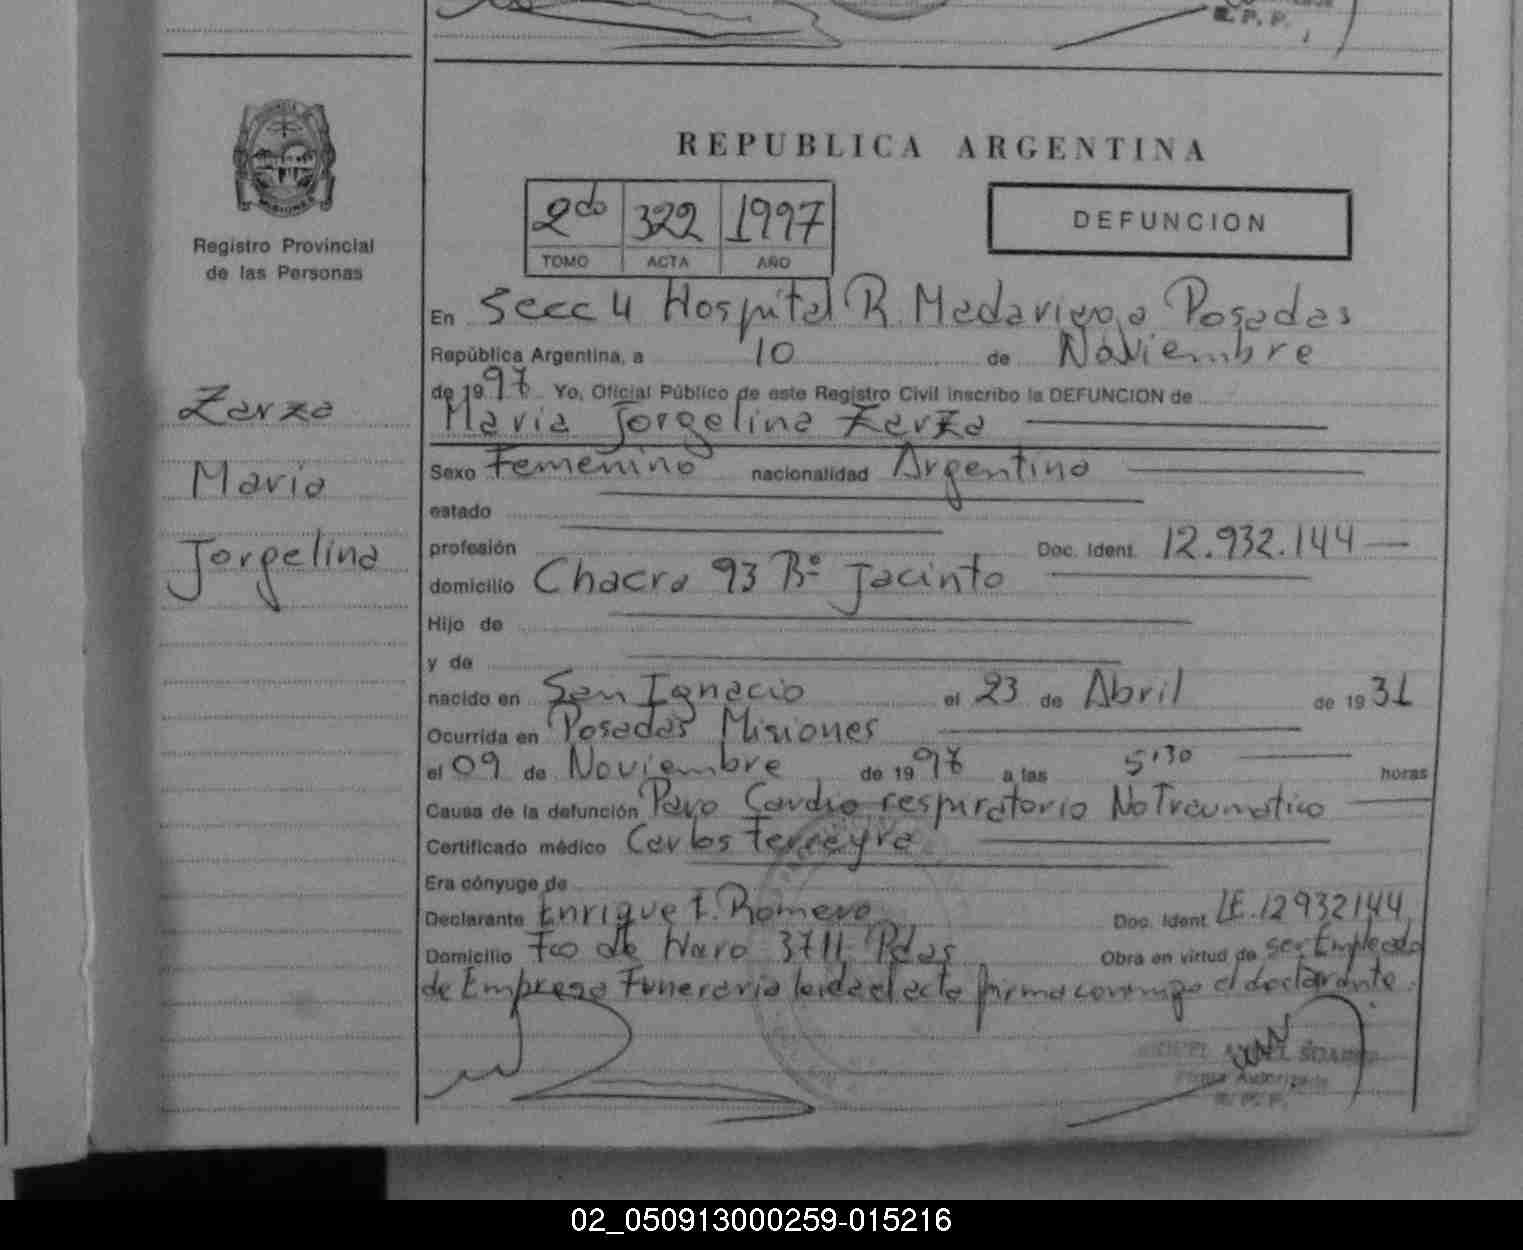 R. P. P.
REPUBLICA ARGENTINA
2do 322 1997
TOMO ACTA AÑO
DEFUNCION
MISIONES
Registro Provincial
de las Personas
Zarza
Maria
Jorgelina
En Secc 4 Hospital R. Madariaga Posadas
República Argentina, a 10 de Noviembre
de 1997 Yo, Oficial Público de este Registro Civil inscribo la DEFUNCION de
Maria Jorgelina Zarza
Sexo Femenino nacionalidad Argentina
estado
profesión Doc. Ident. 12.932.144
domicilio Chacra 93 Bº Jacinto
Hijo de
y de
nacido en San Ignacio el 23 de Abril de 1931
Ocurrida en Posadas Misiones
el 09 de Noviembre de 1997 a las 5'30 horas
Causa de la defunción Paro Cardio respiratorio No Traumatico
Certificado médico Carlos Ferreyra
Era cónyuge de
Declarante Enrique F. Romero Doc. Ident. LE.12932144
Domicilio Fco de Haro 3711 Pdas Obra en virtud de ser Empleado
de Empresa Funeraria leida el acta firma conmigo el declarante.
Firma Autorizada
R. P. P.
02_050913000259-015216